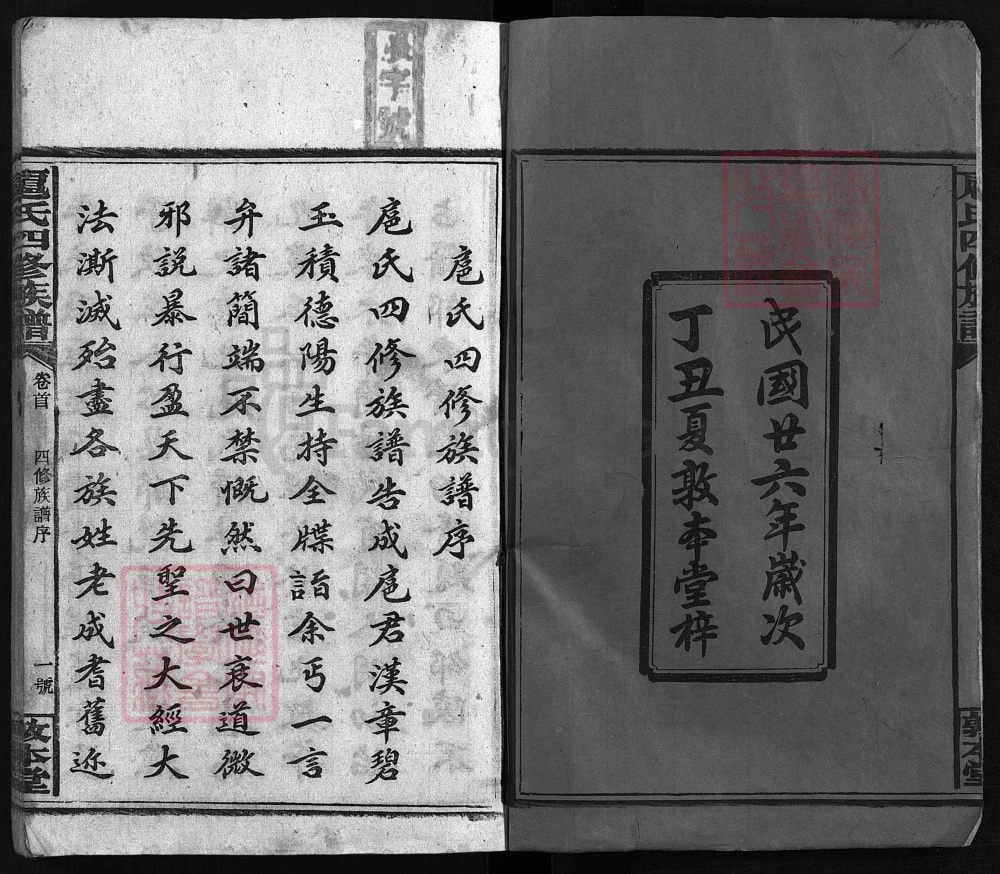 民國廿六年歲次
丁丑夏敦本堂梓
字號
扈氏四修族譜序
扈氏四修族譜告成扈君漢章碧
玉積德陽生持全牒詣余丐一言
弁諸簡端不禁慨然曰世衰道微
邪說暴行盈天下先聖之大經大
法澌滅殆盡各族姓老成耆舊迩
扈氏四修族譜
卷首
四修族譜序
一號
敦本堂